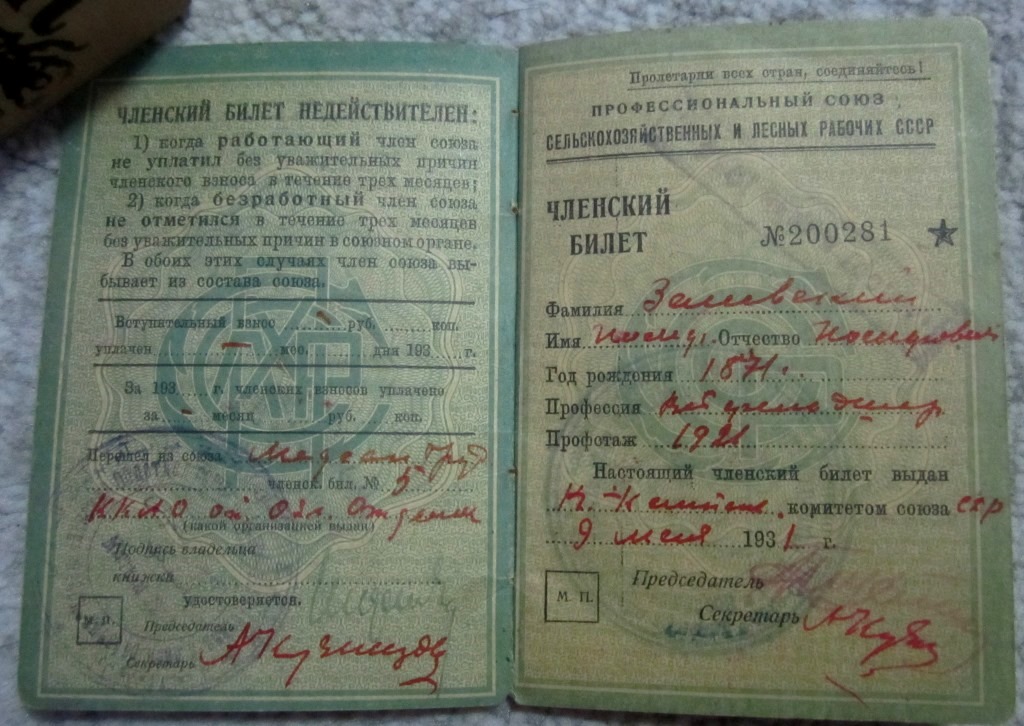 ЧЛЕНСКИЙ БИЛЕТ НЕДЕЙСТВИТЕЛЕН:
1) когда работающий член союза
не уплатил без уважительных причин
членского взноса в течение трех месяцев;
2) когда безработный член союза
не отметился в течение трех месяцев
без уважительных причин в союзном органе.
В обоих этих случаях член союза вы-
бывает из состава союза.
Вступительный взнос руб. коп.
уплачен — мес. дня 193 г.
За 193 г. членских взносов уплачено
за месяц руб. коп.
Перешел из союза Труд
членск. бил. № 5
(какой организацией выдан)
Подпись владельца
книжки
удостоверяется.
М. П.
Председатель
Секретарь
Пролетарии всех стран, соединяйтесь!
ПРОФЕССИОНАЛЬНЫЙ СОЮЗ
СЕЛЬСКОХОЗЯЙСТВЕННЫХ И ЛЕСНЫХ РАБОЧИХ СССР
ЧЛЕНСКИЙ
БИЛЕТ
№200281
Фамилия
Имя Отчество
Год рождения 1871
Профессия
Профстаж 1921
Настоящий членский билет выдан
комитетом союза
9 мая 1931 г.
М. П.
Председатель
Секретарь